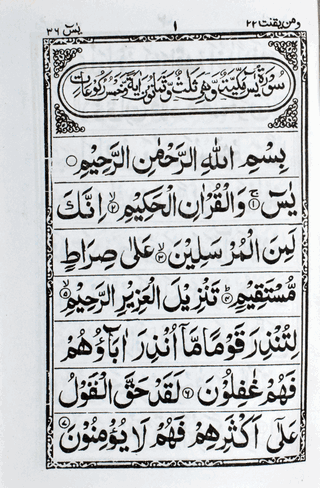 ومن يقنت ٢٢ ١ يٰسٓ ٣٦
سُوْرَةُ يٰسٓ مَكِّيَّةٌ وَّهِيَ ثَلٰثٌ وَّثَمَانُوْنَ اٰيَةً وَّخَمْسُ رُكُوْعَاتٍ
بِسْمِ اللّٰهِ الرَّحْمٰنِ الرَّحِيْمِ ○
يٰسٓ ۚ﴿١﴾ وَالْقُرْاٰنِ الْحَكِيْمِ ۙ﴿٢﴾ اِنَّكَ
لَمِنَ الْمُرْسَلِيْنَ ۙ﴿٣﴾ عَلٰى صِرَاطٍ
مُّسْتَقِيْمٍ ؕ﴿٤﴾ تَنْزِيْلَ الْعَزِيْزِ الرَّحِيْمِ ۙ﴿٥﴾
لِتُنْذِرَ قَوْمًا مَّاۤ اُنْذِرَ اٰبَآؤُهُمْ
فَهُمْ غٰفِلُوْنَ ﴿٦﴾ لَقَدْ حَقَّ الْقَوْلُ
عَلٰۤى اَكْثَرِهِمْ فَهُمْ لَا يُؤْمِنُوْنَ ﴿٧﴾